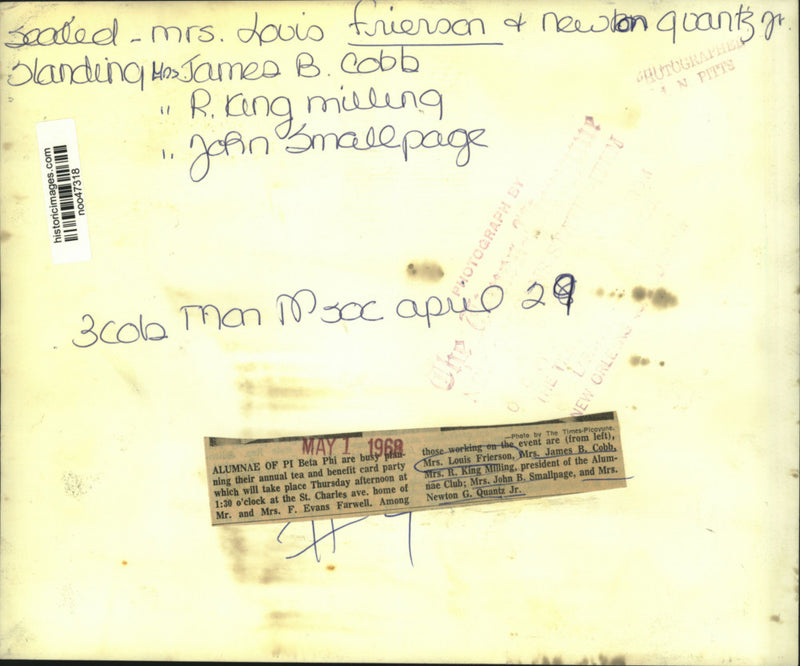 seated - mrs. Louis Frierson & newton quantz jr.
Standing Mrs James B. Cobb
" R. King milling
" John Smallpage
PHOTOGRAPHED
N PITTS
historicimages.com
noo47318
PHOTOGRAPH BY
The
THE
NEW ORLEANS
3 cols Mon M soc april 29
MAY 1 1968
ALUMNAE OF PI Beta Phi are busy plan-
ning their annual tea and benefit card party
which will take place Thursday afternoon at
1:30 o'clock at the St. Charles ave. home of
Mr. and Mrs. F. Evans Farwell. Among
—Photo by The Times-Picayune.
those working on the event are (from left),
Mrs. Louis Frierson, Mrs. James B. Cobb,
Mrs. R. King Milling, president of the Alum-
nae Club; Mrs. John B. Smallpage, and Mrs.
Newton G. Quantz Jr.